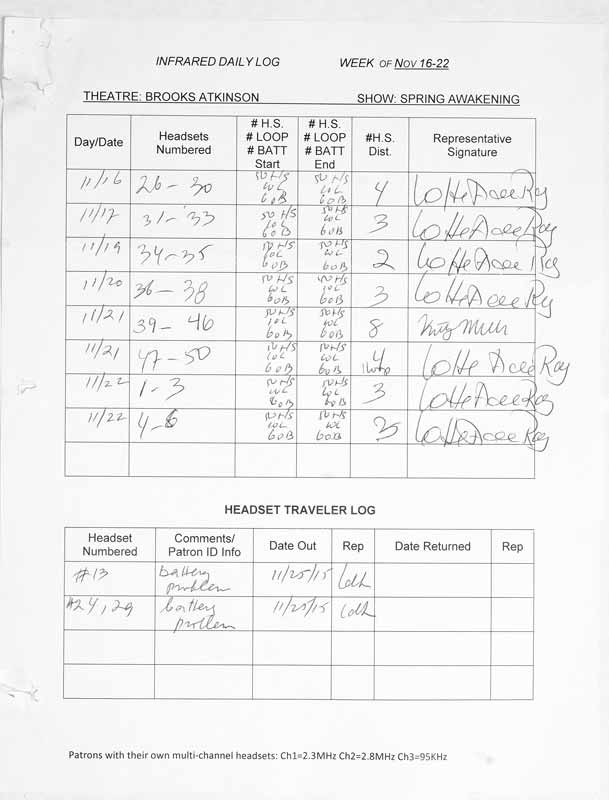 INFRARED DAILY LOG WEEK OF NOV 16-22
THEATRE: BROOKS ATKINSON SHOW: SPRING AWAKENING
Day/Date Headsets Numbered # H.S. # LOOP # BATT Start # H.S. # LOOP # BATT End #H.S. Dist. Representative Signature
11/16 26-30 50 H/S 10L 60B 50 H/S 10L 60B 4
11/17 31-33 50 H/S 10L 60B 50 H/S 10L 60B 3
11/19 34-35 50 H/S 10L 60B 50 H/S 10L 60B 2
11/20 36-38 50 H/S 10L 60B 50 H/S 10L 60B 3
11/21 39-46 50 H/S 10L 60B 50 H/S 10L 60B 8
11/21 47-50 50 H/S 10L 60B 50 H/S 10L 60B 4 1 Loop
11/22 1-3 50 H/S 10L 60B 50 H/S 10L 60B 3
11/22 4-6 50 H/S 10L 60B 50 H/S 10L 60B 3
HEADSET TRAVELER LOG
Headset Numbered Comments/ Patron ID Info Date Out Rep Date Returned Rep
#13 battery problem 11/25/15
#24, 29 battery problem 11/25/15
Patrons with their own multi-channel headsets: Ch1=2.3MHz Ch2=2.8MHz Ch3=95KHz